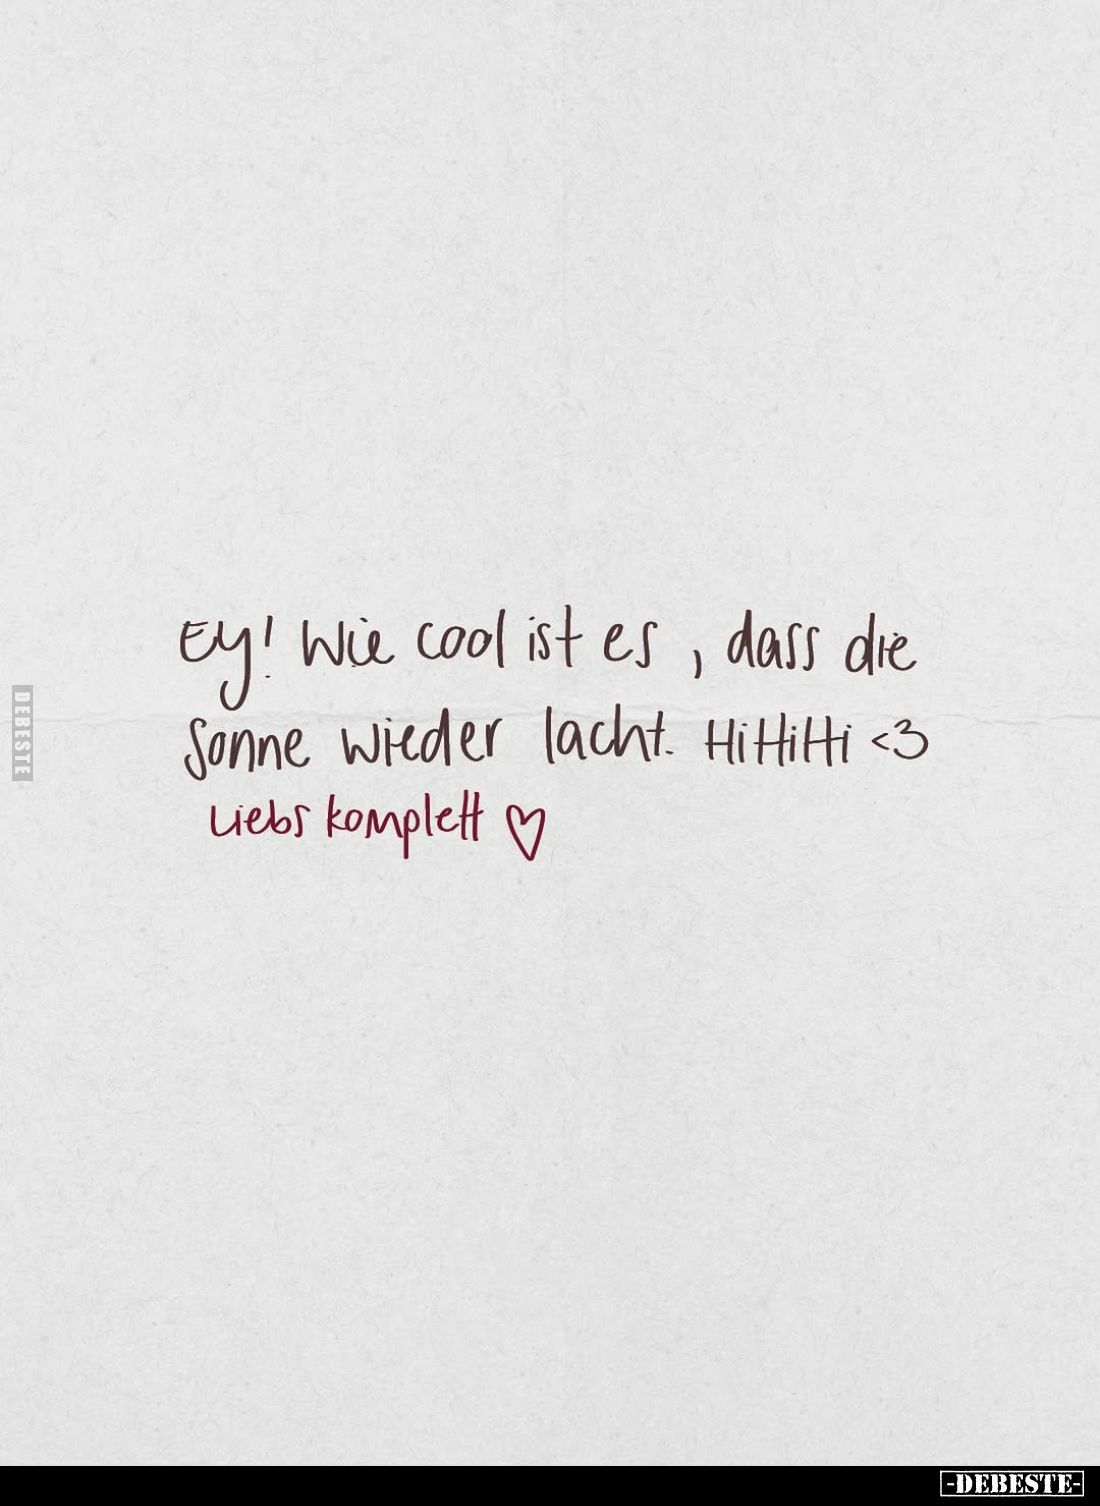 Ey! Wie cool ist es, dass die
Sonne wieder lacht. HiHiHi <3
Liebs komplett ♡
DEBESTE
-DEBESTE-